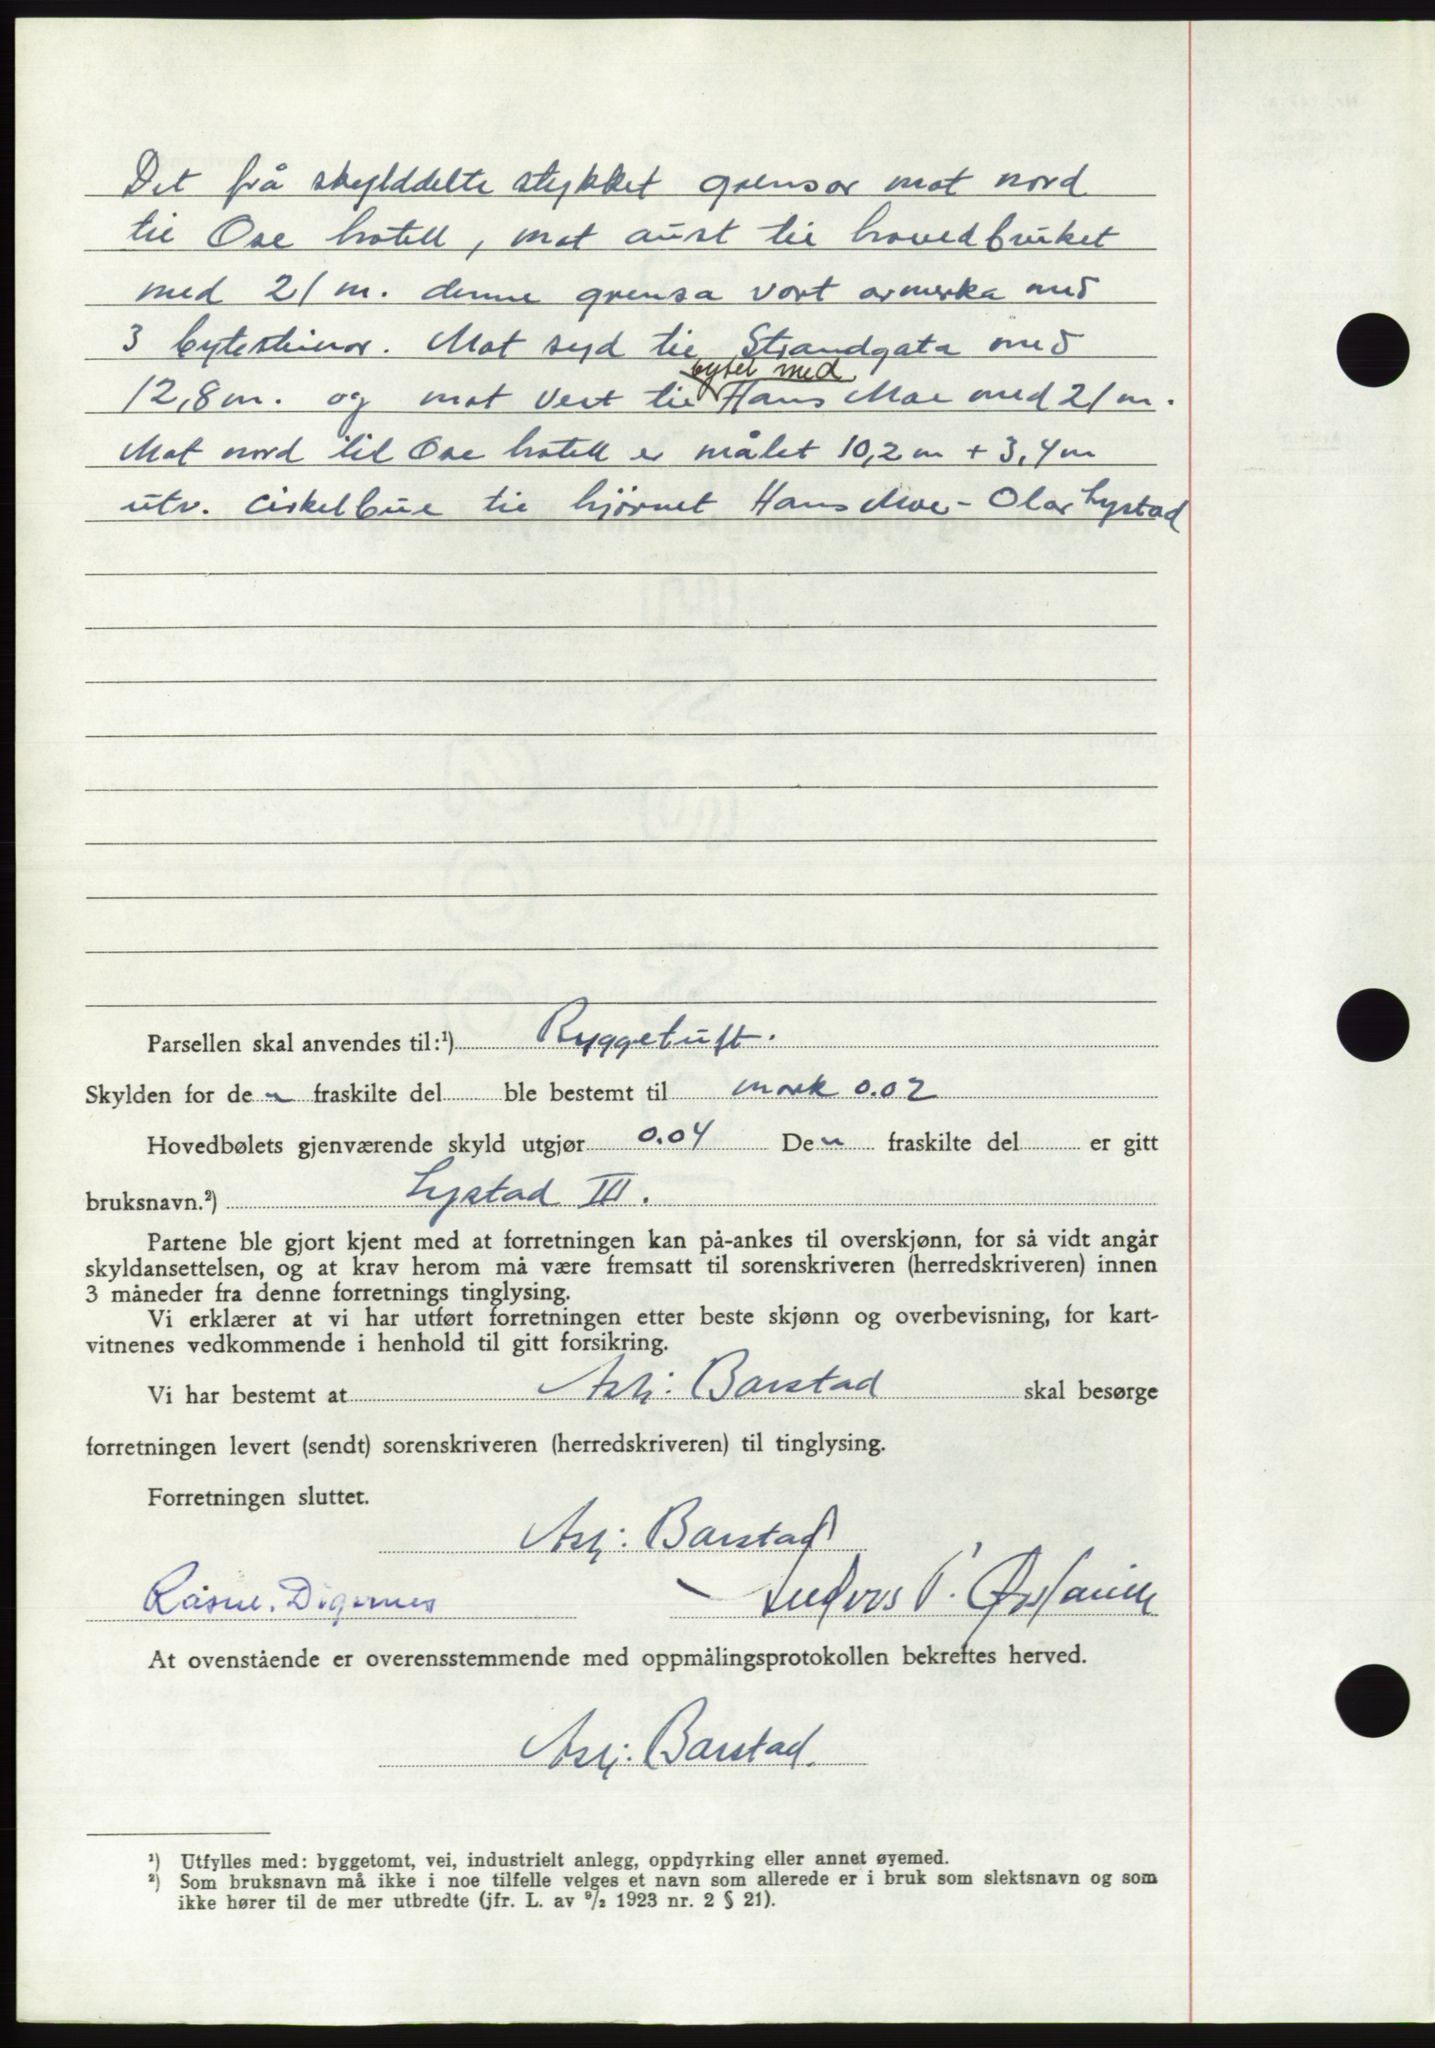 Det frå skylddelte stykket grensar mot nord
til Ose hotell, mot aust til hovedbruket
med 21 m. denne grensa vart avmerka med
3 bytesteinar. Mot syd til Strandgata med
bytet med
12,8 m. og mot vest til Hans Moe med 21 m.
Mot nord til Ose hotell er målet 10,2 m + 3,4 m
utv. cirkelbue til hjørnet Hans Moe - Olav Lystad
Parsellen skal anvendes til:¹) Byggetuft.
Skylden for de n fraskilte del ble bestemt til mark 0.02
Hovedbølets gjenværende skyld utgjør 0.04 De n fraskilte del er gitt
bruksnavn.²) Lystad III.
Partene ble gjort kjent med at forretningen kan på-ankes til overskjønn, for så vidt angår
skyldansettelsen, og at krav herom må være fremsatt til sorenskriveren (herredskriveren) innen
3 måneder fra denne forretnings tinglysing.
Vi erklærer at vi har utført forretningen etter beste skjønn og overbevisning, for kart-
vitnenes vedkommende i henhold til gitt forsikring.
Vi har bestemt at Asbj. Barstad skal besørge
forretningen levert (sendt) sorenskriveren (herredskriveren) til tinglysing.
Forretningen sluttet.
Asbj. Barstad
Rasm. Digernes Anders P.
At ovenstående er overensstemmende med oppmålingsprotokollen bekreftes herved.
Asbj. Barstad.
¹) Utfylles med: byggetomt, vei, industrielt anlegg, oppdyrking eller annet øyemed.
²) Som bruksnavn må ikke i noe tilfelle velges et navn som allerede er i bruk som slektsnavn og som
ikke hører til de mer utbredte (jfr. L. av ⁹/₂ 1923 nr. 2 § 21).